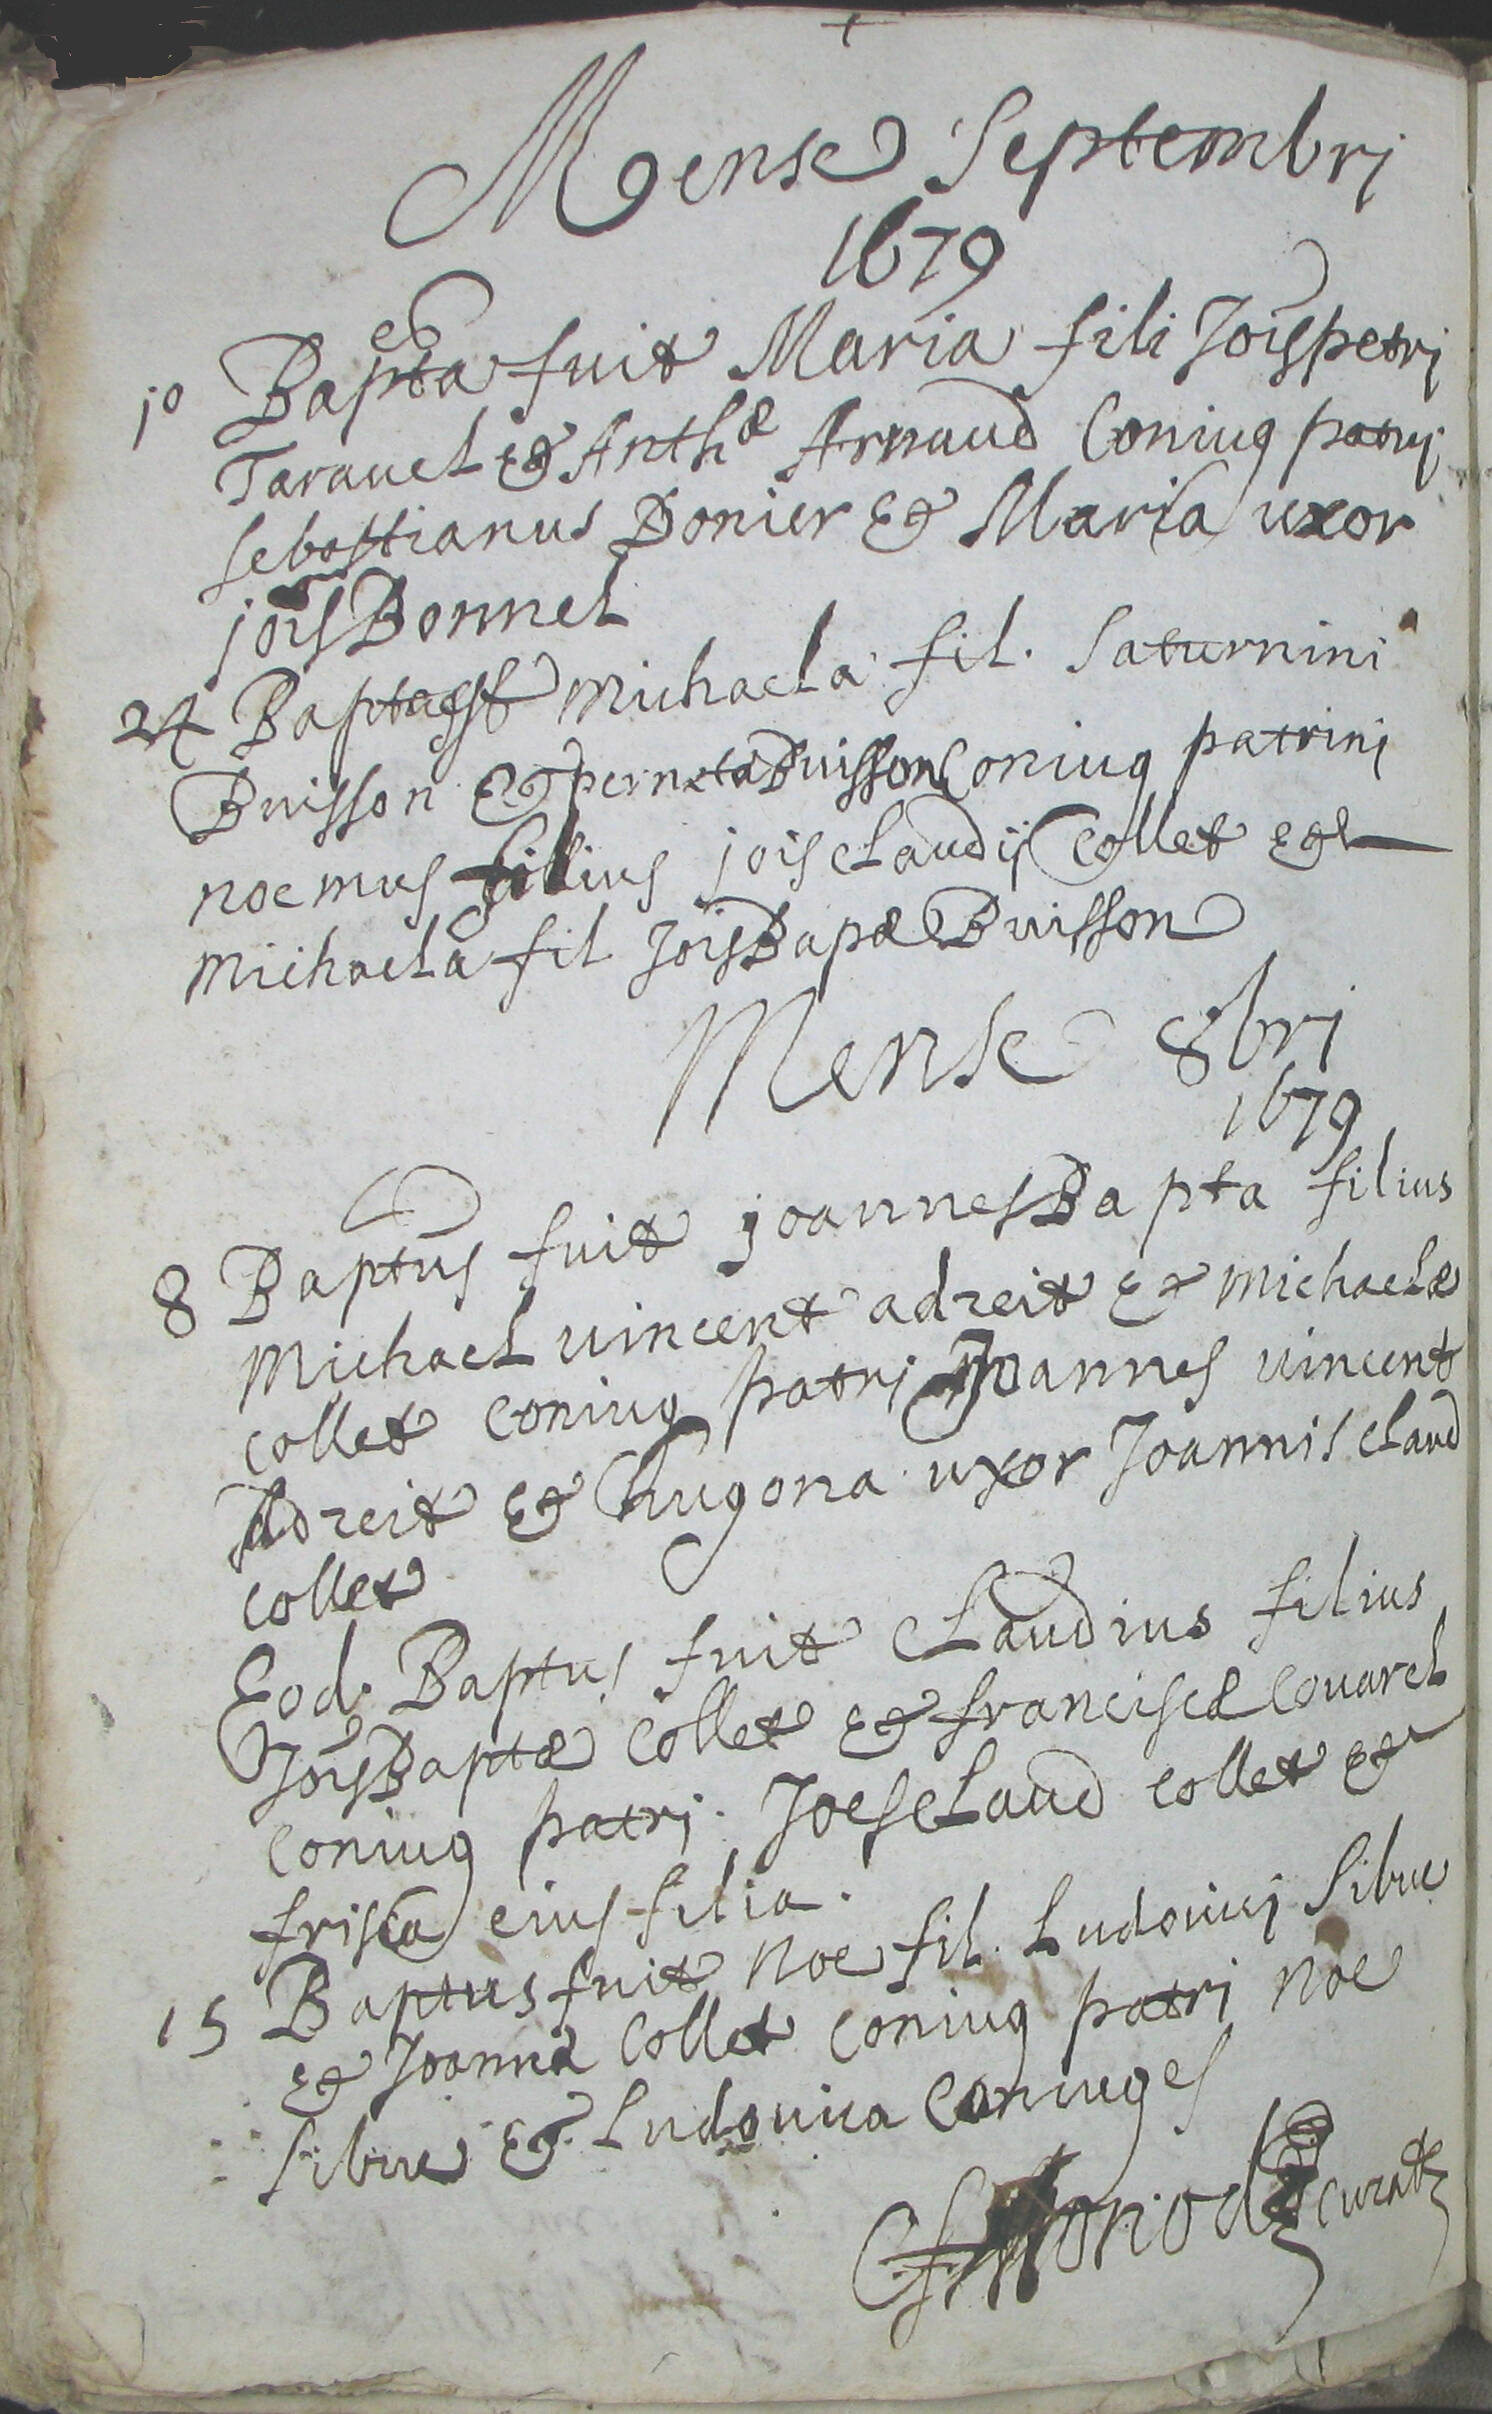 Mense Septembri
1679
10 Bapta fuit Maria fili Jois petri
Tarauel & Anthæ Arnaud Coniug patrj
sebastianus Donier & Maria uxor
jois Bonnel
24 Bapta est michaela fil. Saturnini
Buisson & perneta Buisson Coniug patrinj
noemus filius jois claudij Collet &
michaela fil Jois Bapæ Buisson
Mense 8brj
1679
8 Baptus fuit joannes Bapta filius
Michael uincent adreit & Michaelæ
collet coniug patrj Joannes uincent
Adreit & hugona uxor Joannis claud
collet
Eod. Baptus fuit Claudius filius
Jois Baptæ collet & franciscæ Couarel
coniug patrj. Joes claud collet &
frisca eius filia.
15 Baptus fuit Noe fil. Ludouicj Sibue
& Joannæ Collet coniug patrj Noe
Sibue & Ludouica Coniuges
curatg